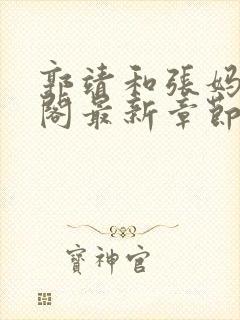 郭靖和張媽
閣最新章節
寶神官